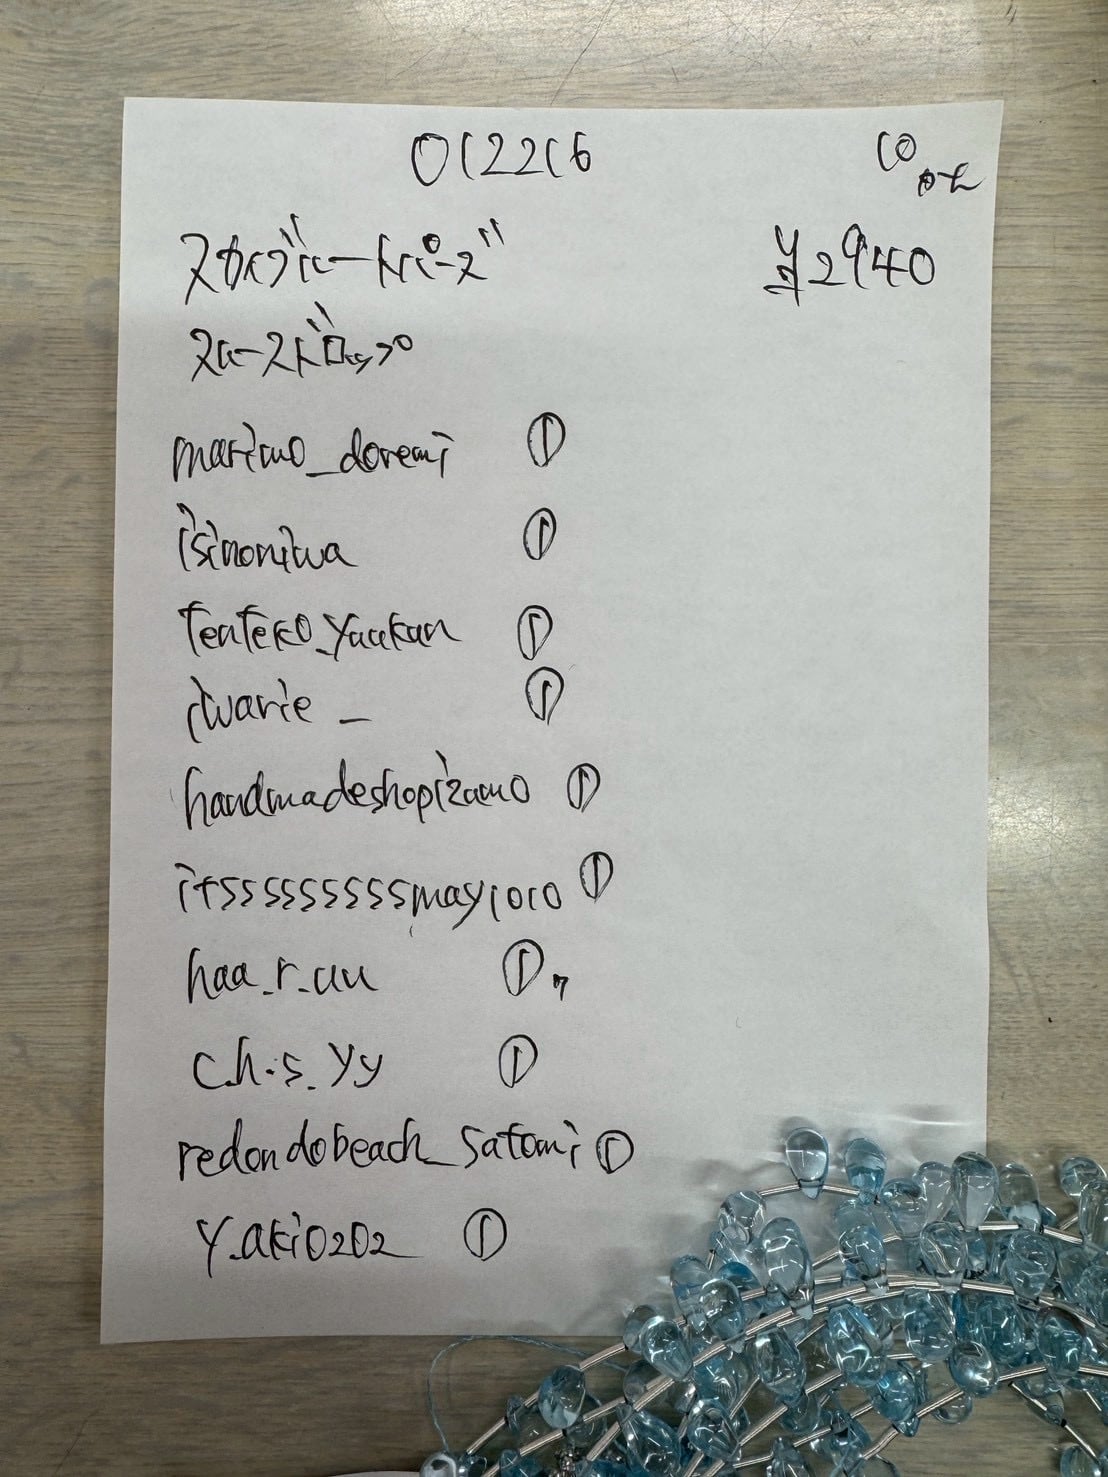 012216
10ヶ
スカイブルートパーズ
¥2940
スムースドロップ
marimo_doremi ①
isinoniwa ①
tenteko_yaakan ①
iwarie_ ①
handmadeshopizumo ①
itsssssssssmay1010 ①
haa_r_uu ①
c.h.s_yy ①
redondobeach_satomi ①
y_aki0202 ①